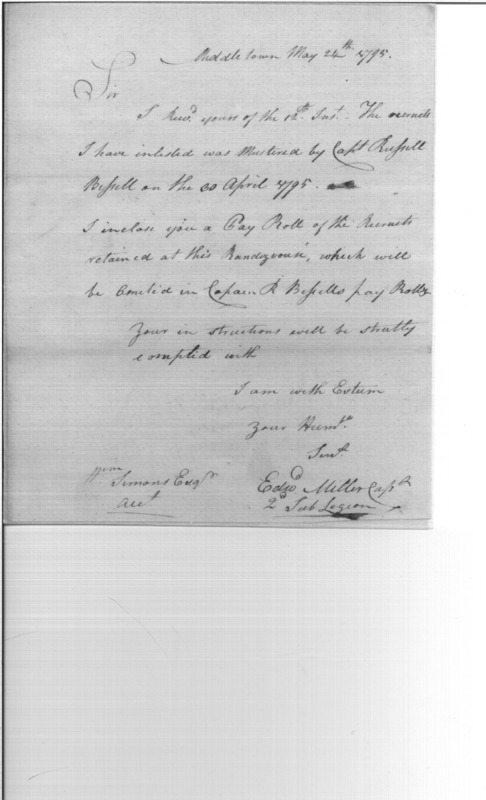 Middletown May 24th 1795.
Sir
I Recd. yours of the 12th. Inst. The recruits
I have inlisted was Mustered by Capt Russell
Bissell on the 30 April 1795.
I inclose you a Pay Roll of the Recruits
retained at this Randezvouse, which will
be Omitid in Capain R Bissells pay Rolls
Your in structions will be stricttly
complid with
I am with Esteem
Your Humle.
Servt.
Wm Simons Esqr
Edwd. Miller Capt
Acct
2d Sub Legion